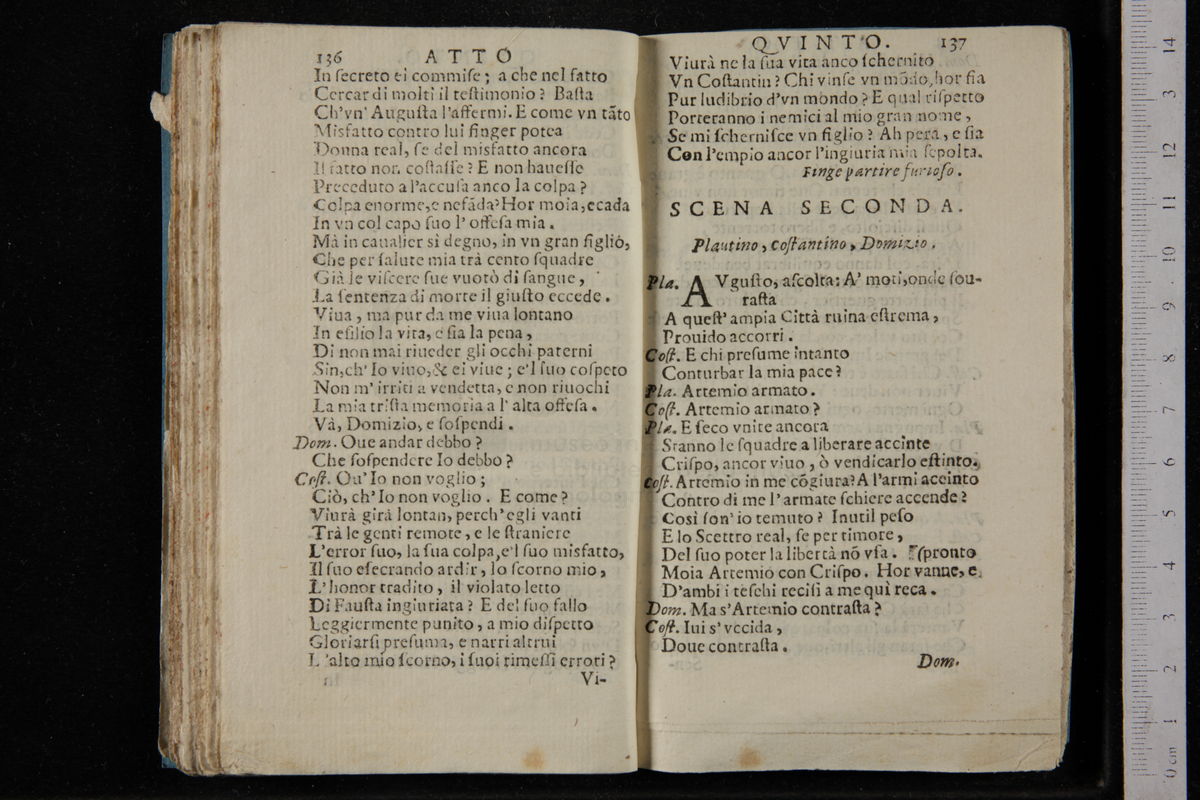 136 ATTO
In ſecreto ti commiſe; a che nel fatto
Cercar di molti il teſtimonio? Baſta
Ch'vn' Auguſta l'affermi. E come vn tāto
Misfatto contro lui finger potea
Donna real, ſe del misfatto ancora
Il fatto non coſtaſſe? E non haueſſe
Preceduto a l'accuſa anco la colpa?
Colpa enorme, e nefāda? Hor moia, e cada
In vn col capo ſuo l'offeſa mia.
Mà in caualier sì degno, in vn gran figliò,
Che per ſalute mia trà cento ſquadre
Già le viſcere ſue vuotò di ſangue,
La ſentenza di morte il giuſto eccede.
Viua, ma pur da me viua lontano
In eſilio la vita, e ſia la pena,
Di non mai riueder gli occhi paterni
Sin, ch'Io viuo, & ei viue; e'l ſuo coſpeto
Non m'irriti a vendetta, e non riuochi
La mia triſta memoria a l'alta offeſa.
Và, Domizio, e ſoſpendi.
Dom. Oue andar debbo?
Che ſoſpendere Io debbo?
Coſt. Ou'Io non voglio;
Ciò, ch'Io non voglio. E come?
Viurà girà lontan, perch'egli vanti
Trà le genti remote, e le ſtraniere
L'error ſuo, la ſua colpa, e'l ſuo misfatto,
Il ſuo eſecrando ardir, lo ſcorno mio,
L'honor tradito, il violato letto
Di Fauſta ingiuriata? E del ſuo fallo
Leggiermente punito, a mio diſpetto
Gloriarſi preſuma, e narri altrui
L'alto mio ſcorno, i ſuoi rimeſſi errori?
Vi-
QVINTO. 137
Viurà ne la ſua vita anco ſchernito
Vn Coſtantin? Chi vinſe vn mōdo, hor ſia
Pur ludibrio d'vn mondo? E qual riſpetto
Porteranno i nemici al mio gran nome,
Se mi ſcherniſce vn figlio? Ah pera, e ſia
Con l'empio ancor l'ingiuria mia ſepolta.
Finge partire furioſo.
SCENA SECONDA.
Plautino, Coſtantino, Domizio.
Pla. AVguſto, aſcolta: A' moti, onde ſou-
raſta
A queſt' ampia Città ruina eſtrema,
Prouido accorri.
Coſt. E chi preſume intanto
Conturbar la mia pace?
Pla. Artemio armato.
Coſt. Artemio armato?
Pla. E ſeco vnite ancora
Stanno le ſquadre a liberare accinte
Criſpo, ancor viuo, ò vendicarlo eſtinto.
Coſt. Artemio in me cōgiura? A l'armi accinto
Contro di me l'armate ſchiere accende?
Così ſon'io temuto? Inutil peſo
E lo Scettro real, ſe per timore,
Del ſuo poter la libertà nō vſa. E ſpronto
Moia Artemio con Criſpo. Hor vanne, e
D'ambi i teſchi reciſi a me quì reca.
Dom. Ma s'Artemio contraſta?
Coſt. Iui s'vccida,
Doue contraſta.
Dom.